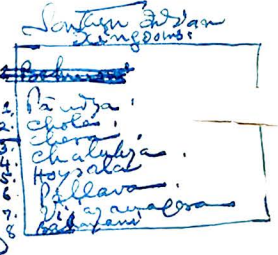 Southern Indian
Kingdoms:
1. Pandya.
2. Chola.
3. Chera
4. Chalukya.
5. Hoysala
6. Pallava.
7. Vijaynagara
8. Bahmani